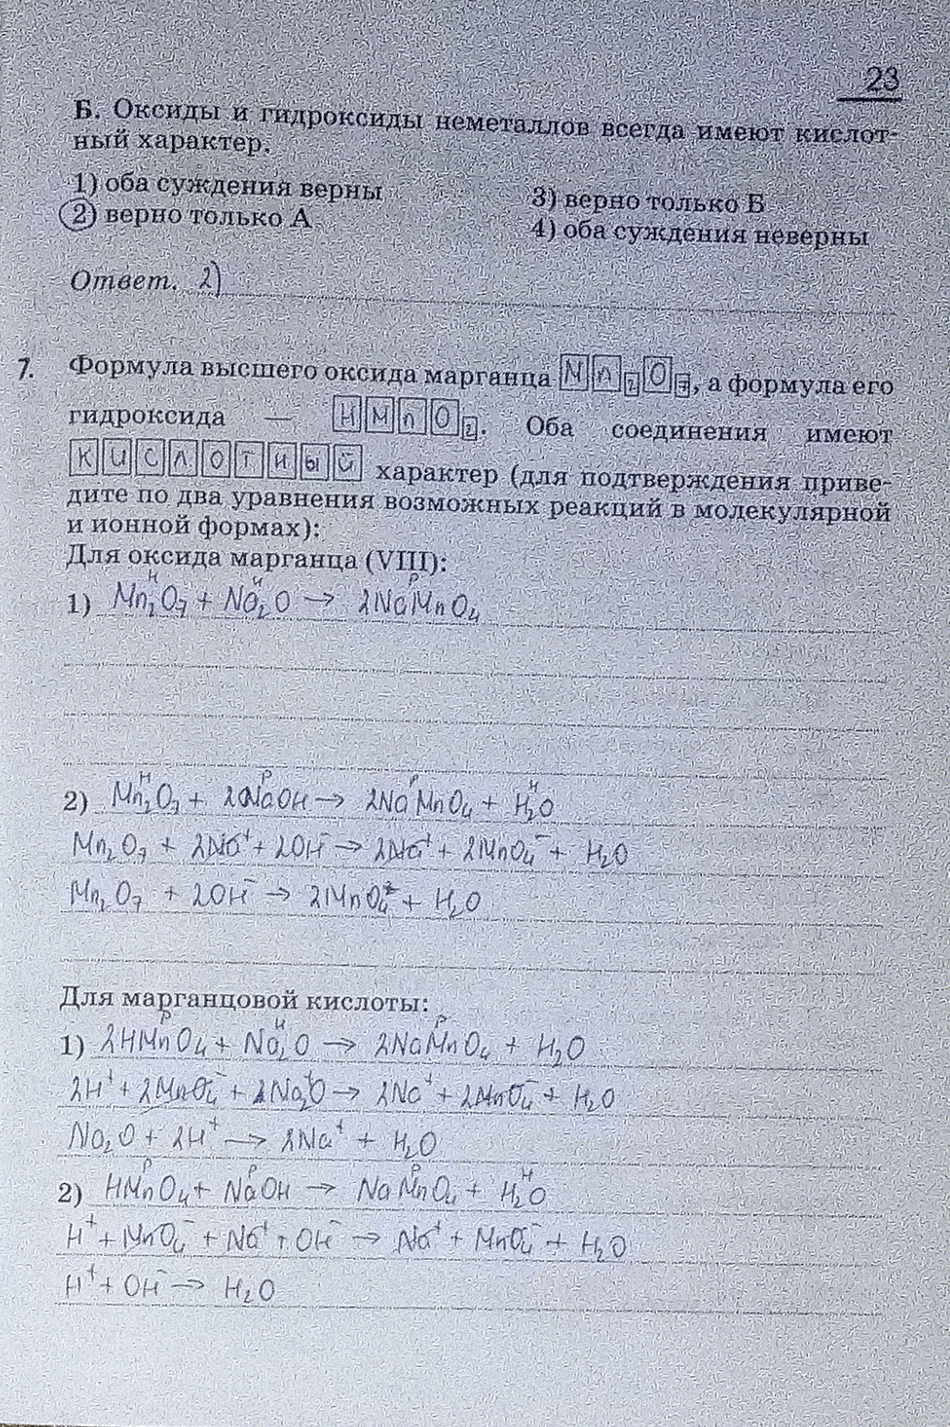 23
Б. Оксиды и гидроксиды неметаллов всегда имеют кислот-
ный характер.
1) оба суждения верны
2) верно только А
3) верно только Б
4) оба суждения неверны
Ответ. 2)
7. Формула высшего оксида марганца Mn₂O₇, а формула его
гидроксида — HMnO₂. Оба соединения имеют
кислотный характер (для подтверждения приве-
дите по два уравнения возможных реакций в молекулярной
и ионной формах):
Для оксида марганца (VIII):
н н р
1) Mn₂O₇ + Na₂O → 2NaMnO₄
н р р н
2) Mn₂O₇ + 2NaOH → 2NaMnO₄ + H₂O
Mn₂O₇ + 2Na⁺ + 2OH⁻ → 2Na⁺ + 2MnO₄⁻ + H₂O
Mn₂O₇ + 2OH⁻ → 2MnO₄⁻ + H₂O
Для марганцовой кислоты:
р н р
1) 2HMnO₄ + Na₂O → 2NaMnO₄ + H₂O
2H⁺ + 2MnO₄⁻ + Na₂O → 2Na⁺ + 2MnO₄⁻ + H₂O
Na₂O + 2H⁺ → 2Na⁺ + H₂O
р р р н
2) HMnO₄ + NaOH → NaMnO₄ + H₂O
H⁺ + MnO₄⁻ + Na⁺ + OH⁻ → Na⁺ + MnO₄⁻ + H₂O
H⁺ + OH⁻ → H₂O